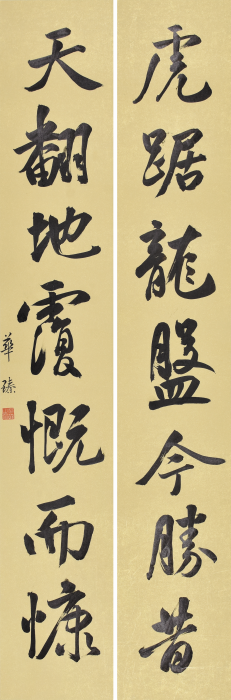 虎踞龍盤今勝昔
天翻地覆慨而慷
華臻